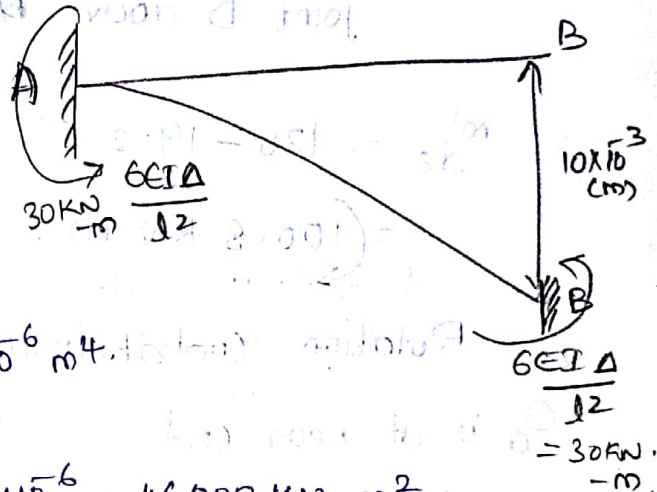 B
A
10×10⁻³
(m)
30KN
-m
6EIΔ
l²
B
6EIΔ
l²
= 30KN.
-m
10⁻⁶ m⁴.